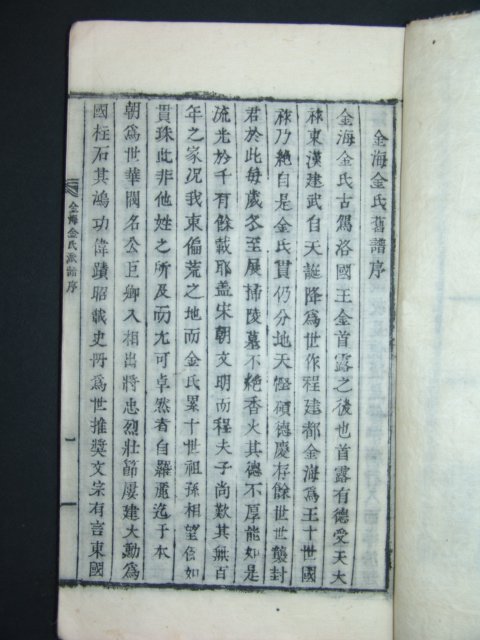 金海金氏舊譜序
金海金氏古駕洛國王金首露之後也首露有德受天大
祿東漢建武自天誕降爲世作程建都金海爲王十世國
祿乃絶自是金氏貫仍分地天慳碩德慶存餘世世襲封
君於此每歲冬至展掃陵墓不絶香火其德不厚能如是
流光於千有餘載耶盖宋朝文明而程夫子尚歎其無百
年之家况我東偏荒之地而金氏累十世祖孫相望信如
貫珠此非他姓之所及而尤可卓然者自羅麗迄于本
朝爲世華閥名公巨卿入相出將忠烈壯節屢建大勳爲
國柱石其鴻功偉蹟昭載史冊爲世推奬文宗有言東國
金海金氏派譜序
一